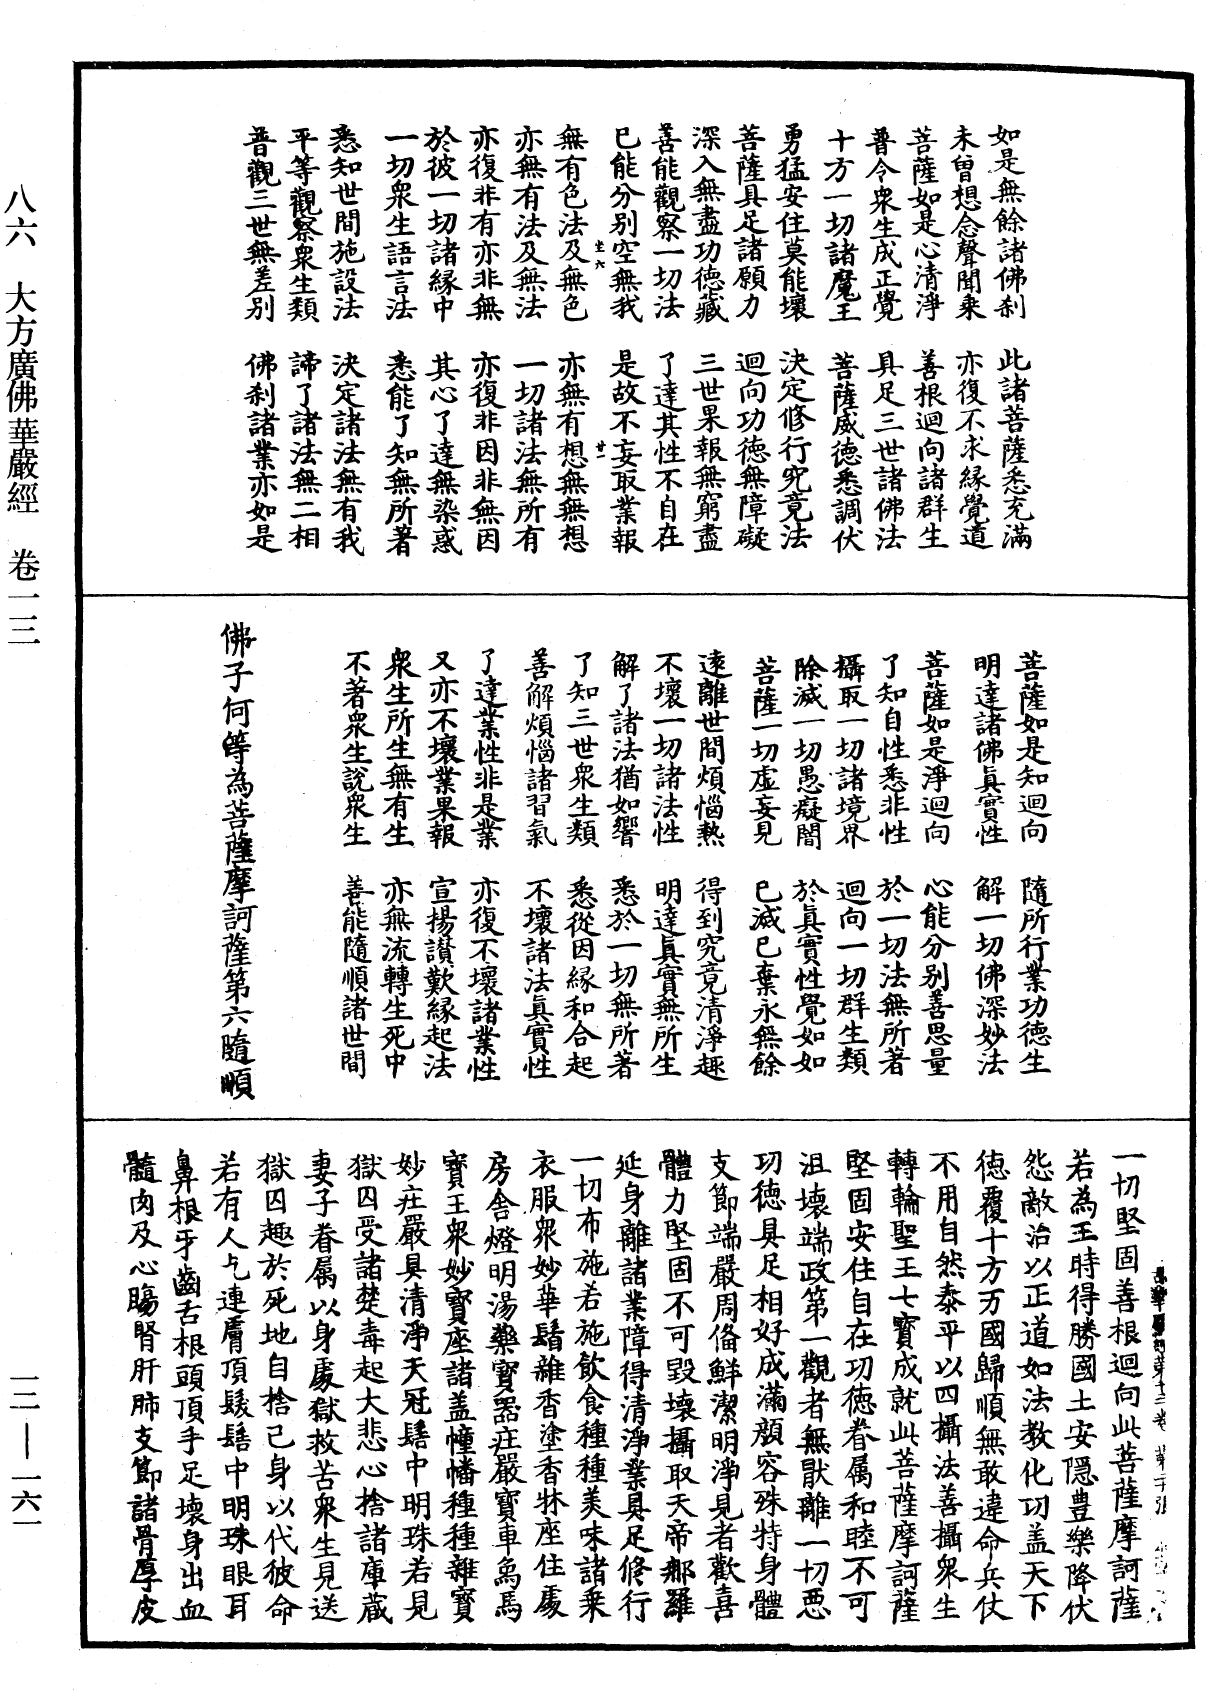 八六　大方廣佛華嚴經　卷一三
一二—一六一
如是無餘諸佛刹　此諸菩薩悉充滿
未曾想念聲聞乘　亦復不求緣覺道
菩薩如是心清淨　善根迴向諸群生
普令衆生成正覺　具足三世諸佛法
十方一切諸魔王　菩薩威德悉調伏
勇猛安住莫能壞　決定修行究竟法
菩薩具足諸願力　迴向功德無障礙
深入無盡功德藏　三世果報無窮盡
善能觀察一切法　了達其性不自在
已能分別空無我　是故不妄取業報
坐六　廿
無有色法及無色　亦無有想無無想
亦無有法及無法　一切諸法無所有
亦復非有亦非無　亦復非因非無因
於彼一切諸緣中　其心了達無染惑
一切衆生語言法　悉能了知無所著
悉知世間施設法　決定諸法無有我
平等觀察衆生類　諦了諸法無二相
普觀三世無差別　佛刹諸業亦如是
菩薩如是知迴向　隨所行業功德生
明達諸佛眞實性　解一切佛深妙法
菩薩如是淨迴向　心能分別善思量
了知自性悉非性　於一切法無所著
攝取一切諸境界　迴向一切群生類
除滅一切愚癡闇　於眞實性覺如如
菩薩一切虛妄見　已滅已棄永無餘
遠離世間煩惱熱　得到究竟清淨趣
不壞一切諸法性　明達眞實無所生
解了諸法猶如響　悉於一切無所著
了知三世衆生類　悉從因緣和合起
善解煩惱諸習氣　不壞諸法眞實性
了達業性非是業　亦復不壞諸業性
又亦不壞業果報　宣揚讃歎緣起法
衆生所生無有生　亦無流轉生死中
不著衆生說衆生　善能隨順諸世間
佛子何等為菩薩摩訶薩第六隨順
一切堅固善根迴向此菩薩摩訶薩
若為王時得勝國土安隱豊樂降伏
怨敵治以正道如法教化功盖天下
德覆十方万國歸順無敢違命兵仗
不用自然泰平以四攝法善攝衆生
轉輪聖王七寶成就此菩薩摩訶薩
堅固安住自在功德眷属和睦不可
沮壞端政第一觀者無猒離一切惡
功德具足相好成滿顏容殊特身體
支節端嚴周俻鮮潔明淨見者歡喜
體力堅固不可毀壞攝取天帝那羅
延身離諸業障得清淨業具足修行
一切布施若施飲食種種美味諸乘
衣服衆妙華鬘雜香塗香牀座住處
房舍燈明湯藥寶器莊嚴寶車象馬
寶王衆妙寶座諸盖幢幡種種雜寶
妙莊嚴具清淨天冠髻中明珠若見
獄囚受諸楚毒起大悲心捨諸庫藏
妻子眷属以身處獄救苦衆生見送
獄囚趣於死地自捨己身以代彼命
若有人乞連膚頂髮髻中明珠眼耳
鼻根牙齒舌根頭頂手足壞身出血
髓肉及心腸腎肝肺支節諸骨厚皮